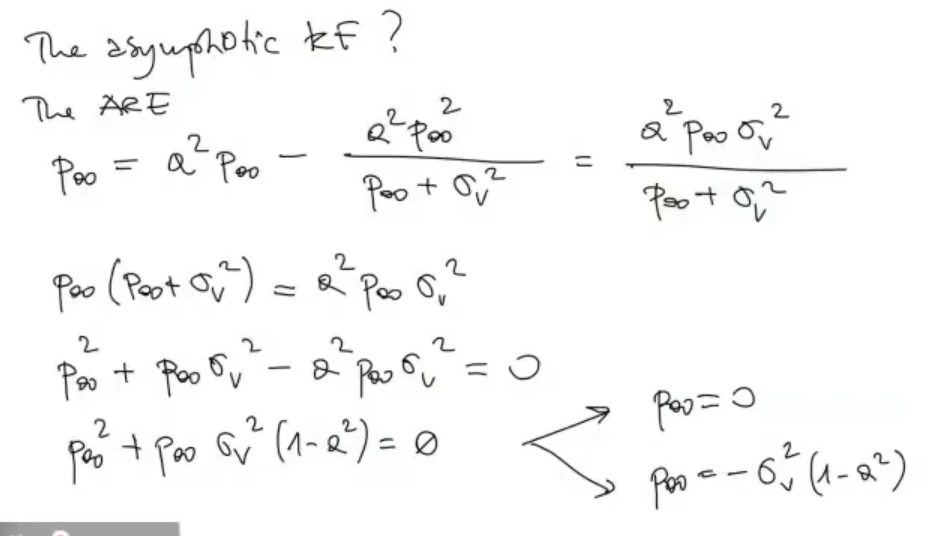 The asymphotic KF ?
The ARE
p∞ = a² p∞ − a² p∞² / (p∞ + σᵥ²) = a² p∞ σᵥ² / (p∞ + σᵥ²)
p∞ (p∞ + σᵥ²) = a² p∞ σᵥ²
p∞² + p∞ σᵥ² − a² p∞ σᵥ² = 0
p∞² + p∞ σᵥ² (1 − a²) = 0
p∞ = 0
p∞ = − σᵥ² (1 − a²)